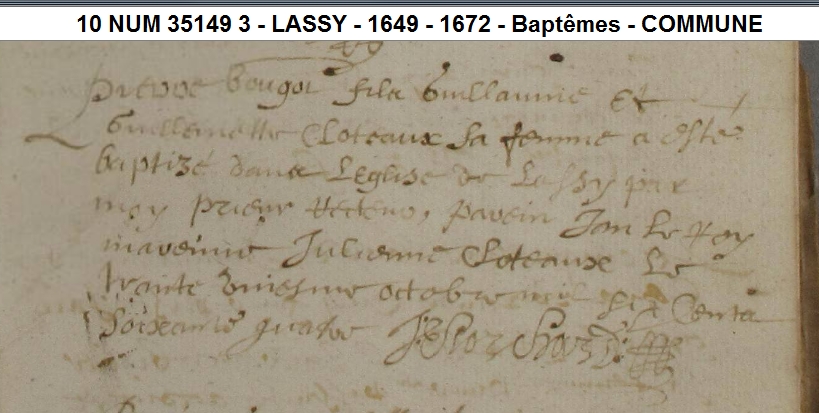 10 NUM 35149 3 - LASSY - 1649 - 1672 - Baptêmes - COMMUNE
pierre bougot fils Guillaume Et
Guillemette Cloteaux sa femme a este
baptizé dans Leglise de Lassy par
moy prieur Recteur, parein Jan Le Roy
mareinne Julienne Cloteaux Le
trante uniesme octobre mil six Cents
soixante quatre